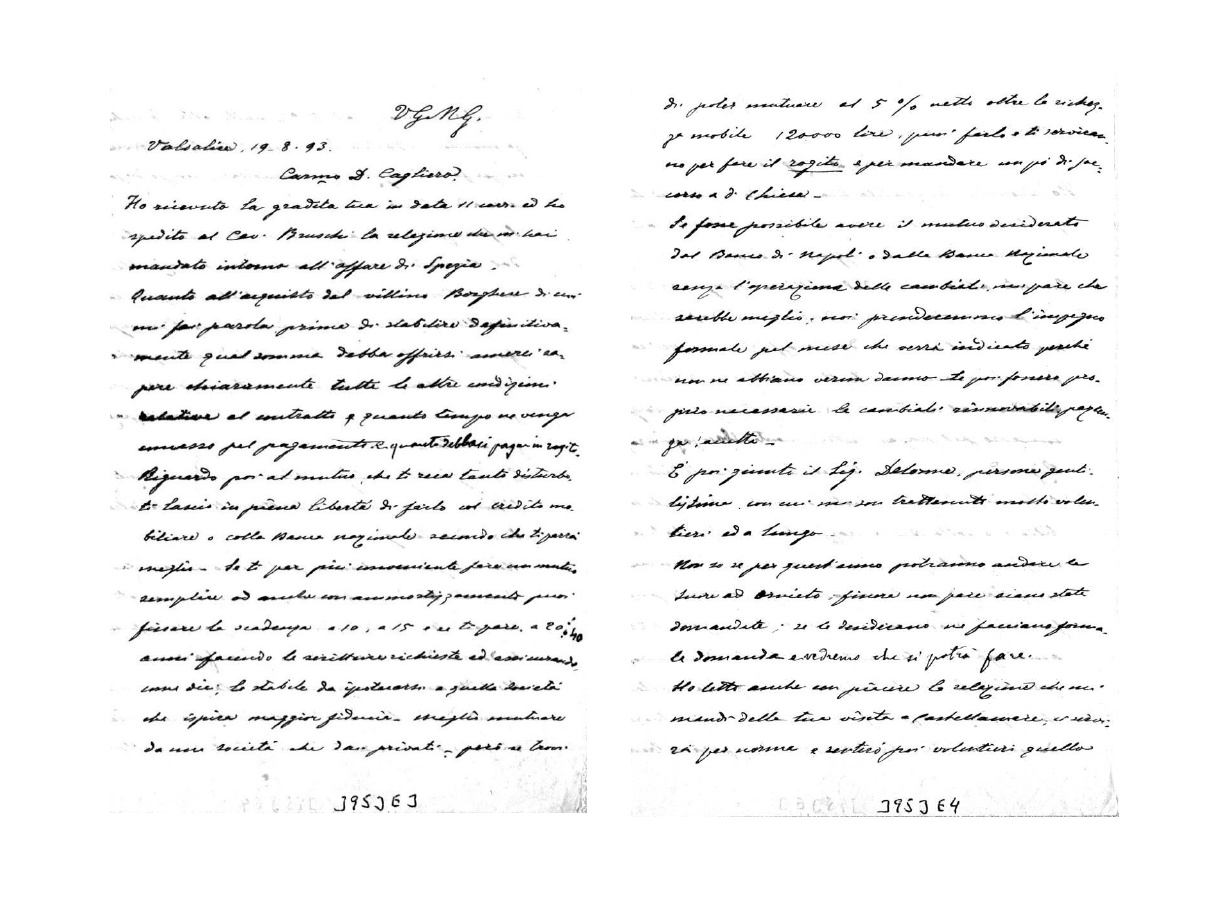 V.G.M.G.
Valsalice, 19-8-93.
Carmo D. Cagliero,
Ho ricevuto la gradita tua in data 11 corr. ed ho
spedito al Cav. Bruschi la relazione che m'hai
mandato intorno all'affare di Spezia.
Quanto all'acquisto del villino Borghese di cui
mi fai parola prima di stabilire definitiva-
mente qual somma debba offrirsi amerei sa-
pere chiaramente tutte le altre condizioni
relative al contratto e quanto tempo ne venga
concesso pel pagamento e quanto debbasi pagar in rogito.
Riguardo poi al mutuo, che ti reca tanto disturbo
ti lascio in piena libertà di farlo col credito mo-
biliare o colla Banca nazionale secondo che ti parrà
meglio. Se ti par più conveniente fare un mutuo
semplice od anche con ammortizzamento puoi
fissare la scadenza a 10, a 15 o se ti pare, a 20 : 40
anni facendo le scritture richieste ed assicurando,
come dici, lo stabile da ipotecarsi a quella società
che ispira maggior fiducia. Meglio mutuare
da una società che da privati, però se trovi
J95J E J
di poter mutuare al 5 % netto oltre la ricchez-
za mobile 120000 lire, puoi farlo e ti serviran-
no per fare il rogito e per mandare un pò di soc-
corso a d. Chiesa.
Se fosse possibile avere il mutuo desiderato
dal Banco di Napoli o dalla Banca Nazionale
senza l'operazione delle cambiali, mi pare che
sarebbe meglio; noi prenderemmo l'impegno
formale pel mese che verrà indicato perchè
non ne abbiano verun danno. Se poi fossero pro-
prio necessarie le cambiali rinnovabili pazien-
za! accetto.
È poi giunto il Sig. Delorme, persona genti-
lissima, con cui mi son trattenuto molto volen-
tieri ed a lungo.
Non so se per quest'anno potranno andare le
Suore ad Orvieto, finora non pare siano state
domandate; se le desiderano ne facciano forma-
le domanda e vedremo che si potrà fare.
Ho letto anche con piacere la relazione che mi
mandi della tua visita a Castellamare, ci servi-
rà per norma e sentirò poi volentieri quello
J95J E4